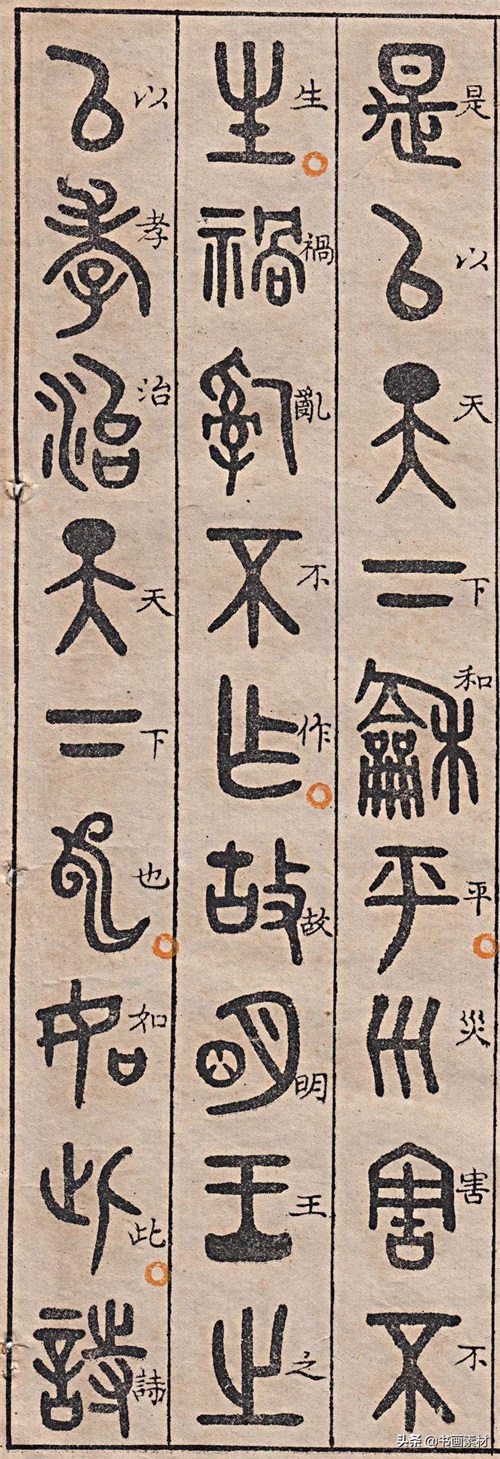 是以天下和平災害不
生禍亂不作故明王之
以孝治天下也如此詩
头条@书画素材